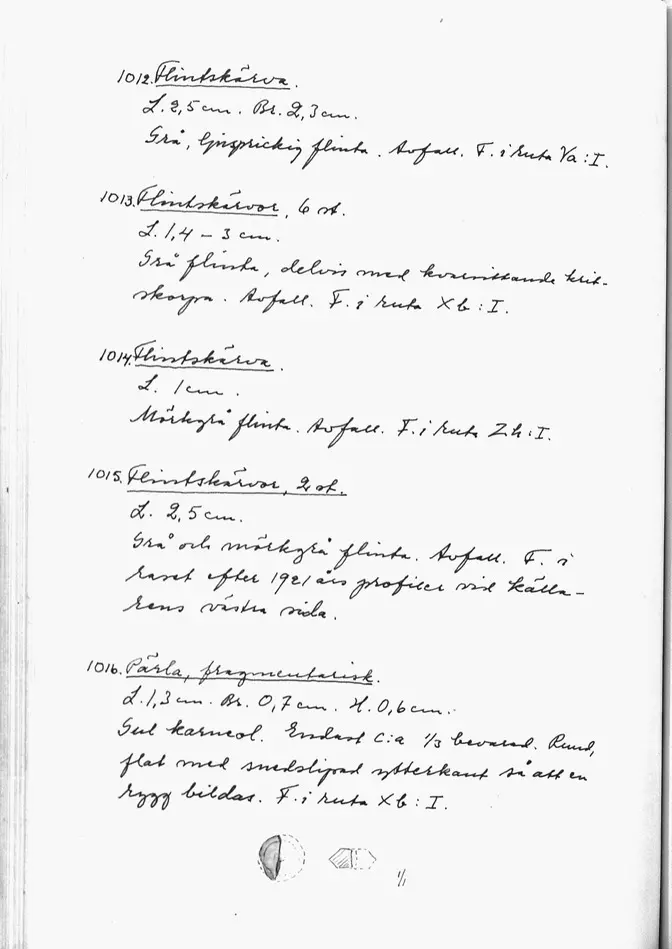 1012. Flintskärva.
L. 2,5 cm. Br. 2,3 cm.
Grå, ljusprickig flinta. Avfall. F. i ruta Va : I.
1013. Flintskärvor, 6 st.
L. 1,4 – 3 cm.
Grå flinta, delvis med kvarsittande krit-
skorpa. Avfall. F. i ruta Xb : I.
1014. Flintskärva.
L. 1 cm.
Mörkgrå flinta. Avfall. F. i ruta Zh : I.
1015. Flintskärvor, 2 st.
L. 2,5 cm.
Grå och mörkgrå flinta. Avfall. F. i
raset efter 1921 års profiler vid källa-
rens västra sida.
1016. Pärla, fragmentarisk.
L. 1,3 cm. Br. 0,7 cm. H. 0,6 cm.
Gul karneol. Endast c:a 1/3 bevarad. Rund,
flat med snedslipad ytterkant så att en
rygg bildas. F. i ruta Xb : I.
1/1